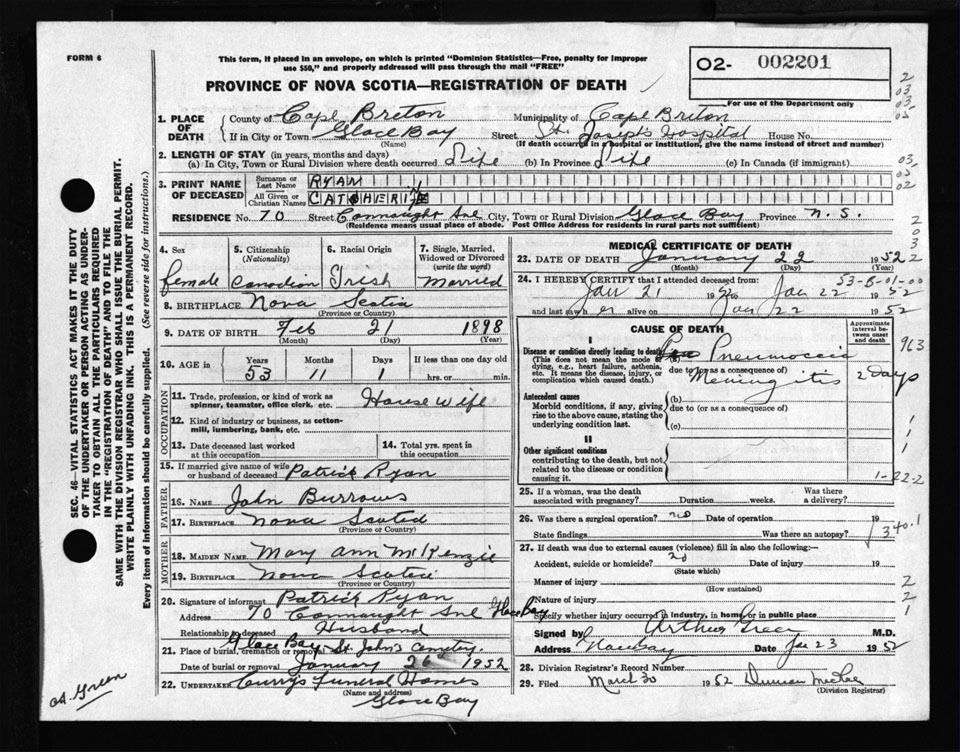 FORM 6
This form, if placed in an envelope, on which is printed "Dominion Statistics—Free, penalty for improper
use $50," and properly addressed will pass through the mail "FREE"
O2- 002201
For use of the Department only
PROVINCE OF NOVA SCOTIA—REGISTRATION OF DEATH
1. PLACE OF DEATH County of Cape Breton Municipality of Cape Breton
If in City or Town Glace Bay (Name) Street St. Joseph's Hospital House No.
(If death occurred in a hospital or institution, give the name instead of street and number)
2. LENGTH OF STAY (in years, months and days)
(a) In City, Town or Rural Division where death occurred Life (b) In Province Life (c) In Canada (if immigrant)
3. PRINT NAME OF DECEASED Surname or Last Name RYAN
All Given or Christian Names CATHERINE
RESIDENCE No. 70 Street Connaught Ave City, Town or Rural Division Glace Bay Province N. S.
(Residence means usual place of abode. Post Office Address for residents in rural parts not sufficient)
4. Sex female
5. Citizenship (Nationality) Canadian
6. Racial Origin Irish
7. Single, Married, Widowed or Divorced (write the word) Married
8. BIRTHPLACE Nova Scotia
(Province or Country)
9. DATE OF BIRTH Feb 21 1898
(Month) (Day) (Year)
10. AGE in Years 53 Months 11 Days 1 If less than one day old hrs. or min.
OCCUPATION
11. Trade, profession, or kind of work as spinner, teamster, office clerk, etc. House Wife
12. Kind of industry or business, as cotton-mill, lumbering, bank, etc.
13. Date deceased last worked at this occupation
14. Total yrs. spent in this occupation
15. If married give name of wife or husband of deceased Patrick Ryan
FATHER
16. NAME John Burrows
17. BIRTHPLACE Nova Scotia
(Province or Country)
MOTHER
18. MAIDEN NAME Mary Ann McKenzie
19. BIRTHPLACE Nova Scotia
(Province or Country)
20. Signature of informant Patrick Ryan
Address 70 Connaught Ave Glace Bay
Relationship to deceased Husband
21. Place of burial, cremation or removal Glace Bay St. John's Cemetery.
Date of burial or removal January 26 1952
22. UNDERTAKER Curry's Funeral Homes
(Name and address)
Glace Bay
MEDICAL CERTIFICATE OF DEATH
23. DATE OF DEATH January 22 1952
(Month) (Day) (Year)
24. I HEREBY CERTIFY that I attended deceased from:
Jan 21 1952 to Jan 22 1952
and last saw her alive on Jan 22 1952
53-B-01-00
CAUSE OF DEATH
Approximate interval between onset and death
I
Disease or condition directly leading to death
(This does not mean the mode of dying, e.g., heart failure, asthenia, etc. It means the disease, injury, or complication which caused death.)
(a) Pneumoccic
due to (or as a consequence of)
Meningitis 2 Days
Antecedent causes
Morbid conditions, if any, giving rise to the above cause, stating the underlying condition last.
(b)
due to (or as a consequence of)
(c)
II
Other significant conditions
contributing to the death, but not related to the disease or condition causing it.
25. If a woman, was the death associated with pregnancy? Duration weeks. Was there a delivery?
26. Was there a surgical operation? no Date of operation 19
State findings Was there an autopsy?
27. If death was due to external causes (violence) fill in also the following:—
Accident, suicide or homicide? no Date of injury 19
(State which)
Manner of injury
(How sustained)
Nature of injury
Specify whether injury occurred in industry, in home or in public place
Signed by Arthur Green M.D.
Address Glace Bay Date Jan 23 1952
28. Division Registrar's Record Number
29. Filed March 30 1952 Duncan MacRae
(Division Registrar)
2
03
03
05
03
05
02
2
03
2
963
1
1
1-22-2
340.1
2
2
1
SEC. 46—VITAL STATISTICS ACT MAKES IT THE DUTY
OF THE UNDERTAKER OR PERSON ACTING AS UNDER-
TAKER TO OBTAIN ALL THE PARTICULARS REQUIRED
IN THE "REGISTRATION OF DEATH" AND TO FILE THE
SAME WITH THE DIVISION REGISTRAR WHO SHALL ISSUE THE BURIAL PERMIT.
WRITE PLAINLY WITH UNFADING INK. THIS IS A PERMANENT RECORD.
Every item of information should be carefully supplied. (See reverse side for instructions.)
A. Green